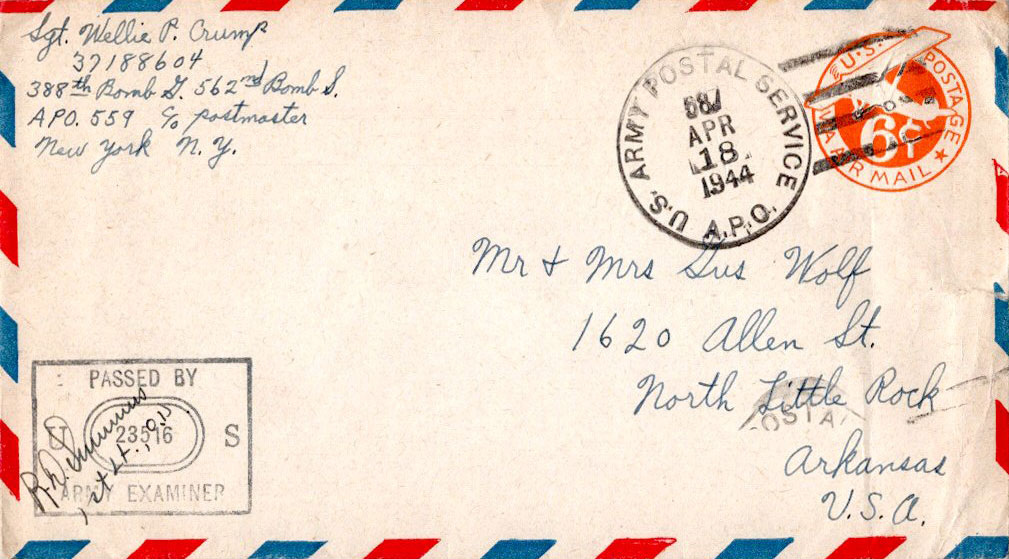 Sgt. Wellie P. Crump
37188604
388th Bomb G. 562nd Bomb S.
APO. 559 c/o postmaster
New York N.Y.
U.S. ARMY POSTAL SERVICE
587
APR
18
1944
A.P.O.
U.S. POSTAGE
6¢
VIA AIR MAIL
Mr & Mrs Gus Wolf
1620 Allen St.
North Little Rock
Arkansas
U.S.A.
PASSED BY
U 23516 S
ARMY EXAMINER
1st Lt.,